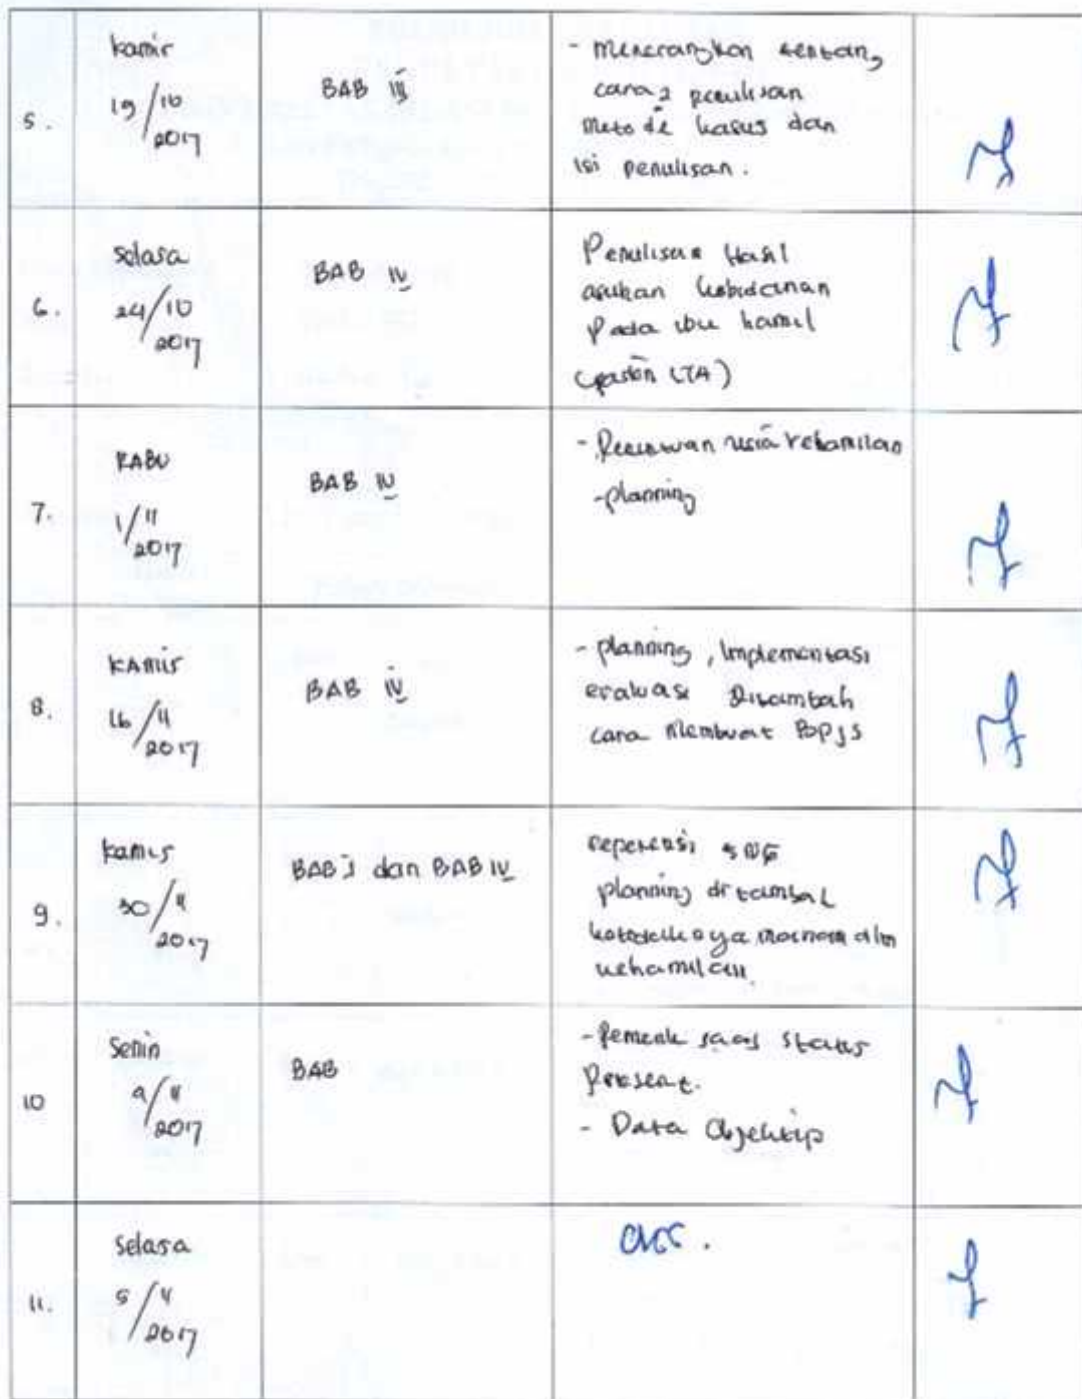 5.
Kamis
19/10
2017
BAB III
- Menerangkan tentang
cara2 penulisan
Metode kasus dan
isi penulisan.
6.
Selasa
24/10
2017
BAB IV
Penulisan Hasil
asuhan kebidanan
Pada ibu hamil
(pasien LTA)
7.
RABU
1/11
2017
BAB IV
- usia kehamilan
- planning
8.
KAMIS
16/11
2017
BAB IV
- planning, Implementasi
evaluasi Ditambah
cara Membuat BPJS
9.
Kamis
30/11
2017
BAB I dan BAB IV
planning di
kehamilan
10
Senin
/11
2017
BAB
- status
Present.
- Data Objektip
11.
Selasa
5/
2017